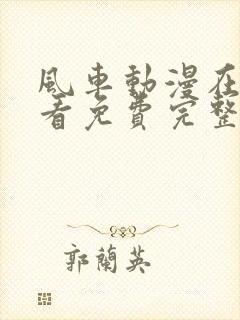 風車動漫在
看免費完整
郭蘭英